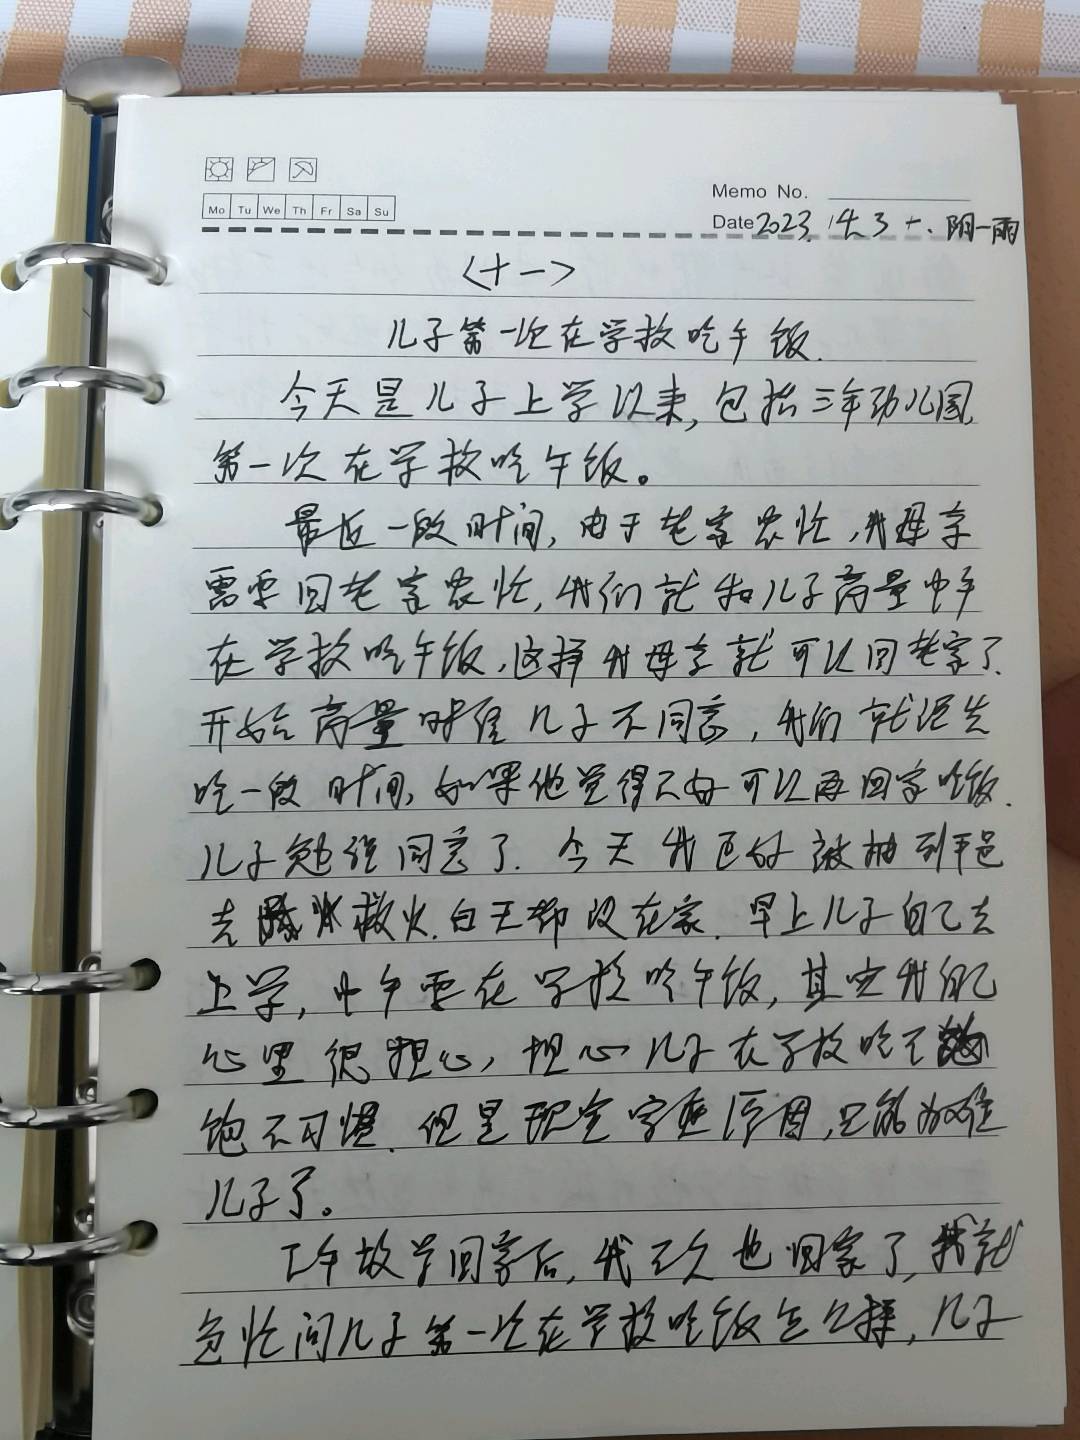 Mo Tu We Th Fr Sa Su
Memo No.
Date 2023. 4. 3 阴-雨
<十一>
儿子第一次在学校吃午饭.
今天是儿子上学以来,包括三年幼儿园,
第一次在学校吃午饭。
最近一段时间,由于老家农忙,我母亲
需要回老家农忙,我们就和儿子商量中午
在学校吃午饭,这样我母亲就可以回老家了.
开始商量时候儿子不同意,我们就说先
吃一段时间,如果他觉得不好可以再回家吃饭.
儿子勉强同意了.今天我正好被抽到
去救火.白天都没在家.早上儿子自己去
上学,中午要在学校吃午饭,其实我们
心里很担心,担心儿子在学校吃不
饱不习惯.但是现实家庭原因,只能为难
儿子了。
下午放学回家后,我也回家了,我就
急忙问儿子第一次在学校吃饭怎么样,儿子